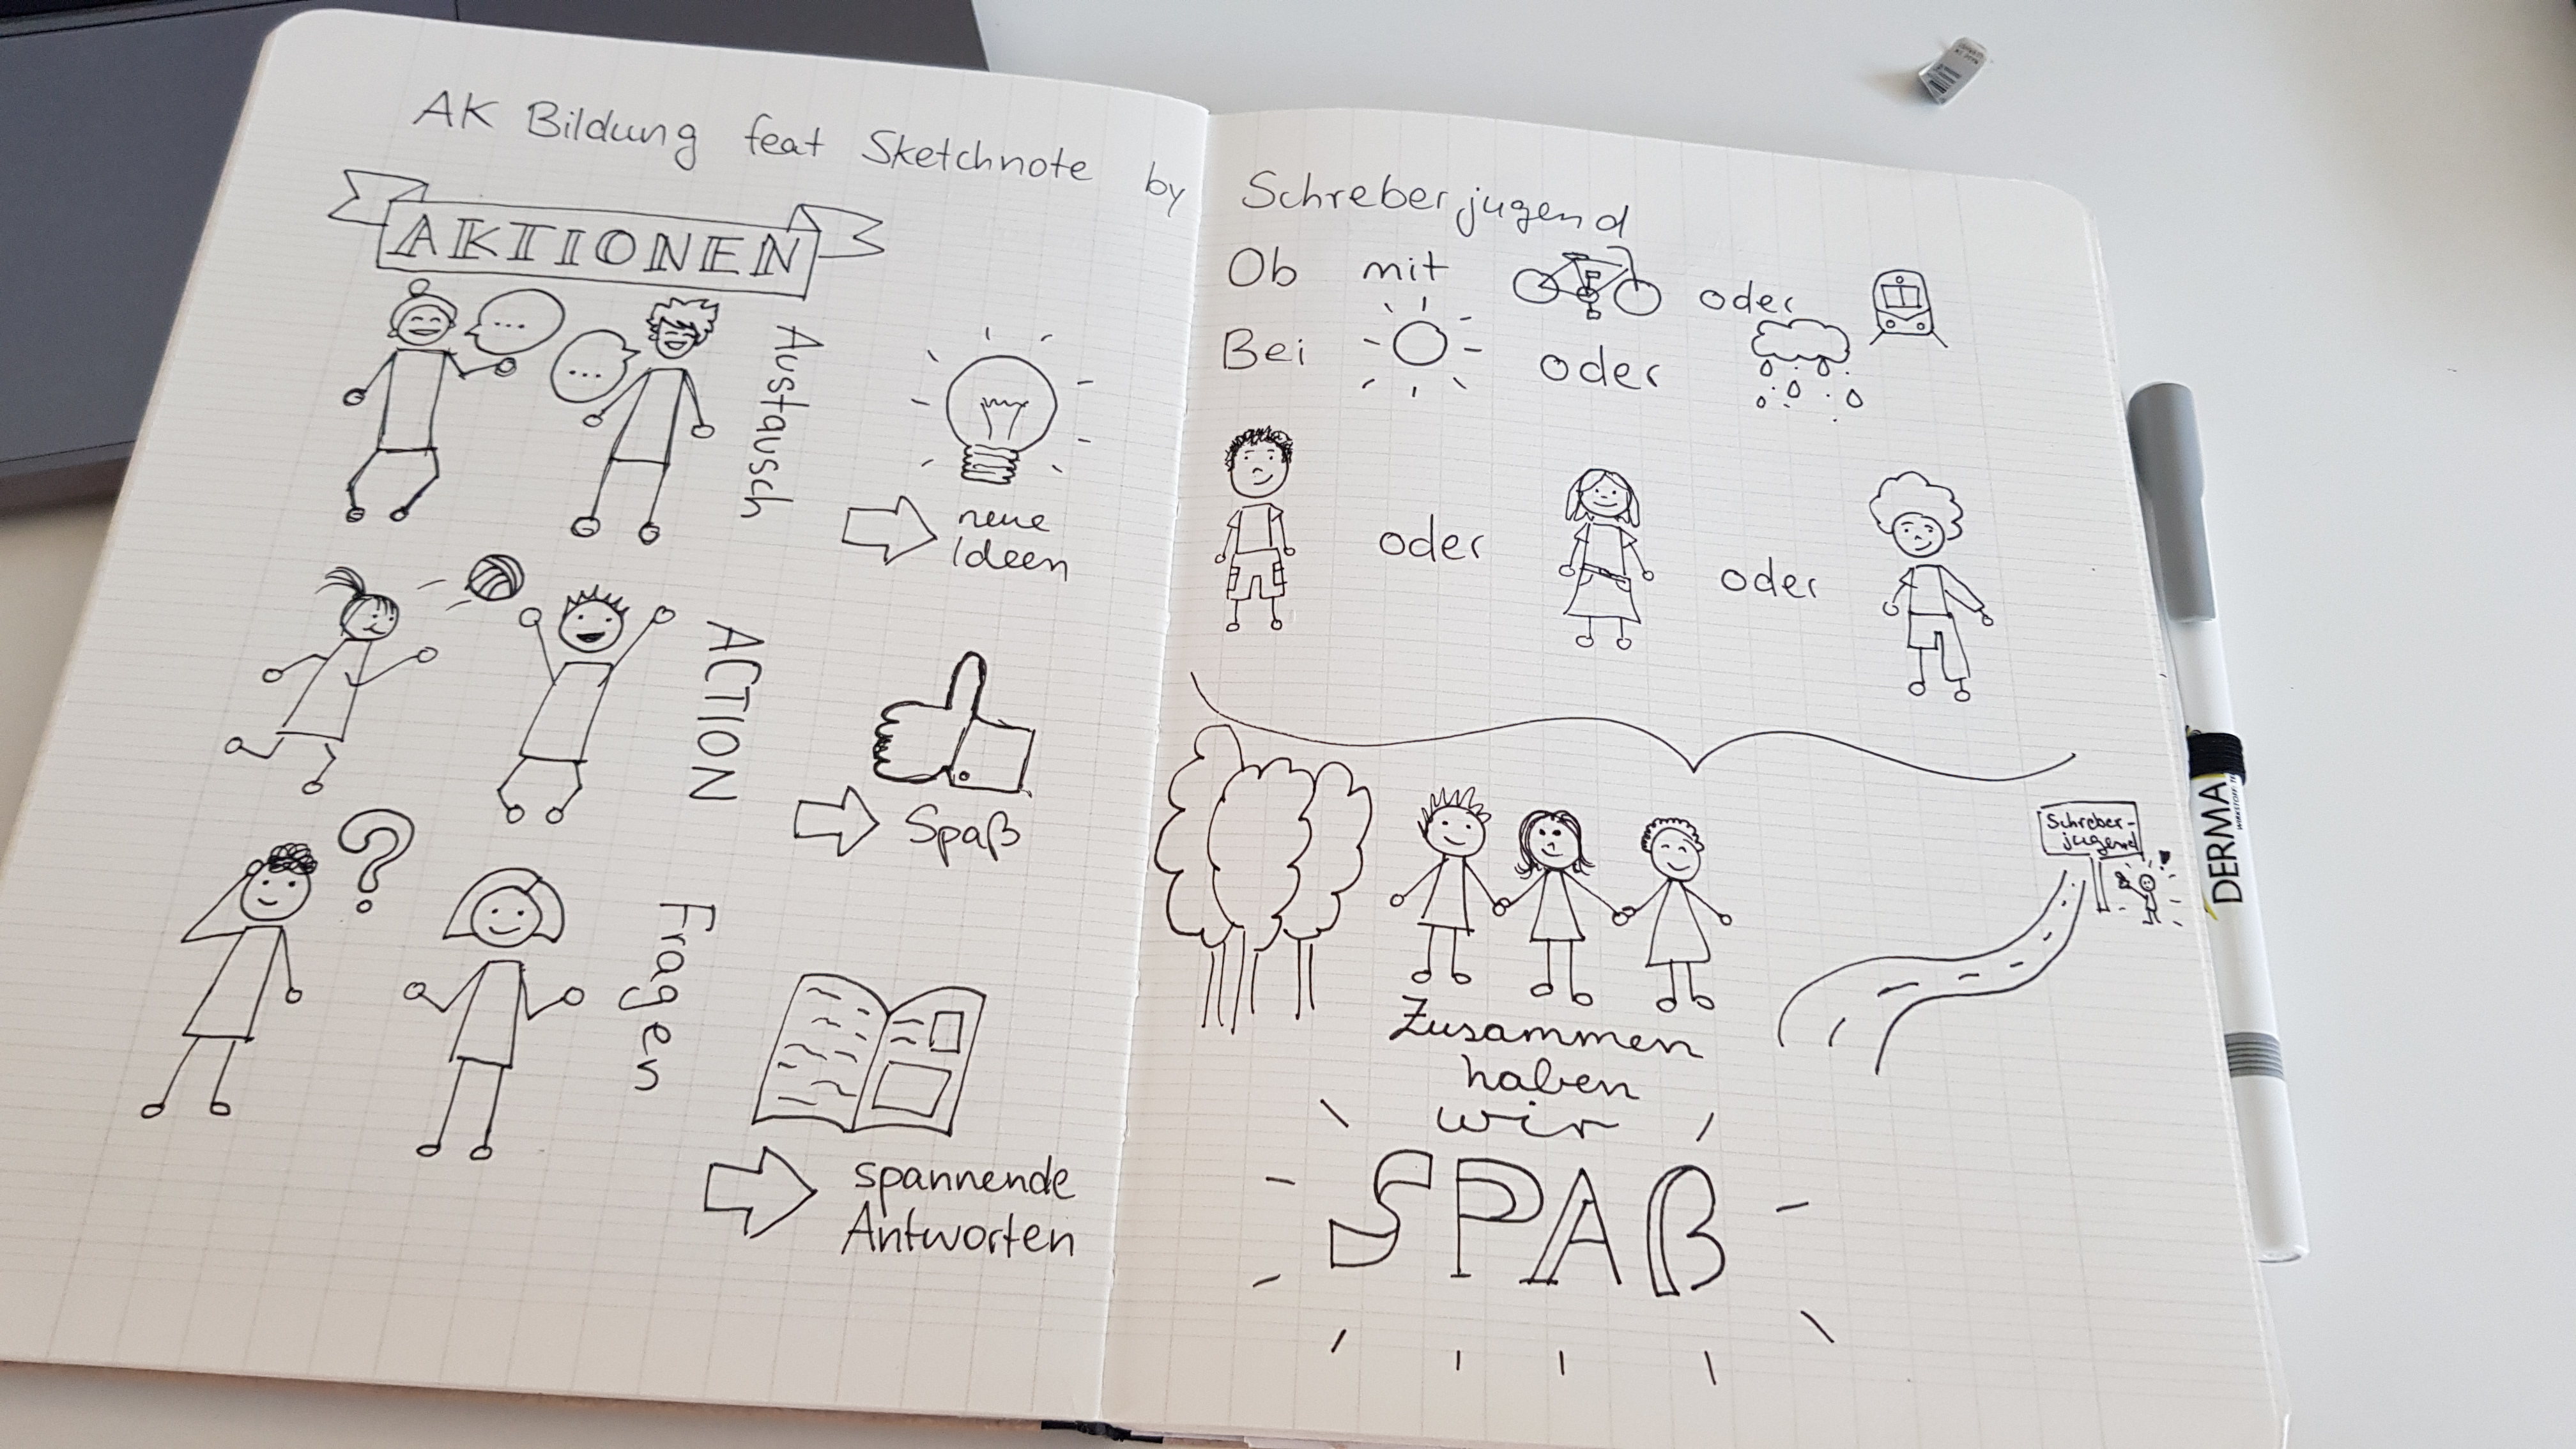 AK Bildung feat Sketchnote by Schreberjugend
AKTIONEN
...
...
Austausch
neue
Ideen
ACTION
Spaß
?
Fragen
spannende
Antworten
Ob mit oder
Bei oder
oder oder
Schreber-
jugend
Zusammen
haben
wir
SPAß
DERMA